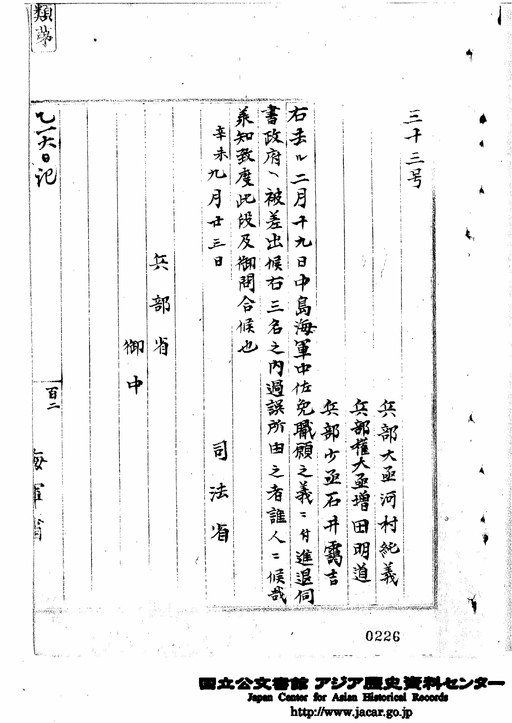 三十三号
兵部大丞河村純義
兵部權大丞増田明道
兵部少丞石井靄吉
右去ル二月十九日中島海軍中佐免職願之義ニ付進退伺
書政府ヘ被差出候右三名之内過誤所由之者誰人ニ候哉
承知致度此段及御問合候也
辛未九月廿三日
司法省
兵部省
御中
乙一大日記
百二
海軍省
類第
0226
国立公文書館 アジア歴史資料センター
Japan Center for Asian Historical Records
http://www.jacar.go.jp